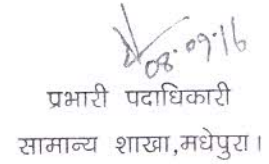 08.09.16
प्रभारी पदाधिकारी
सामान्य शाखा,मधेपुरा।